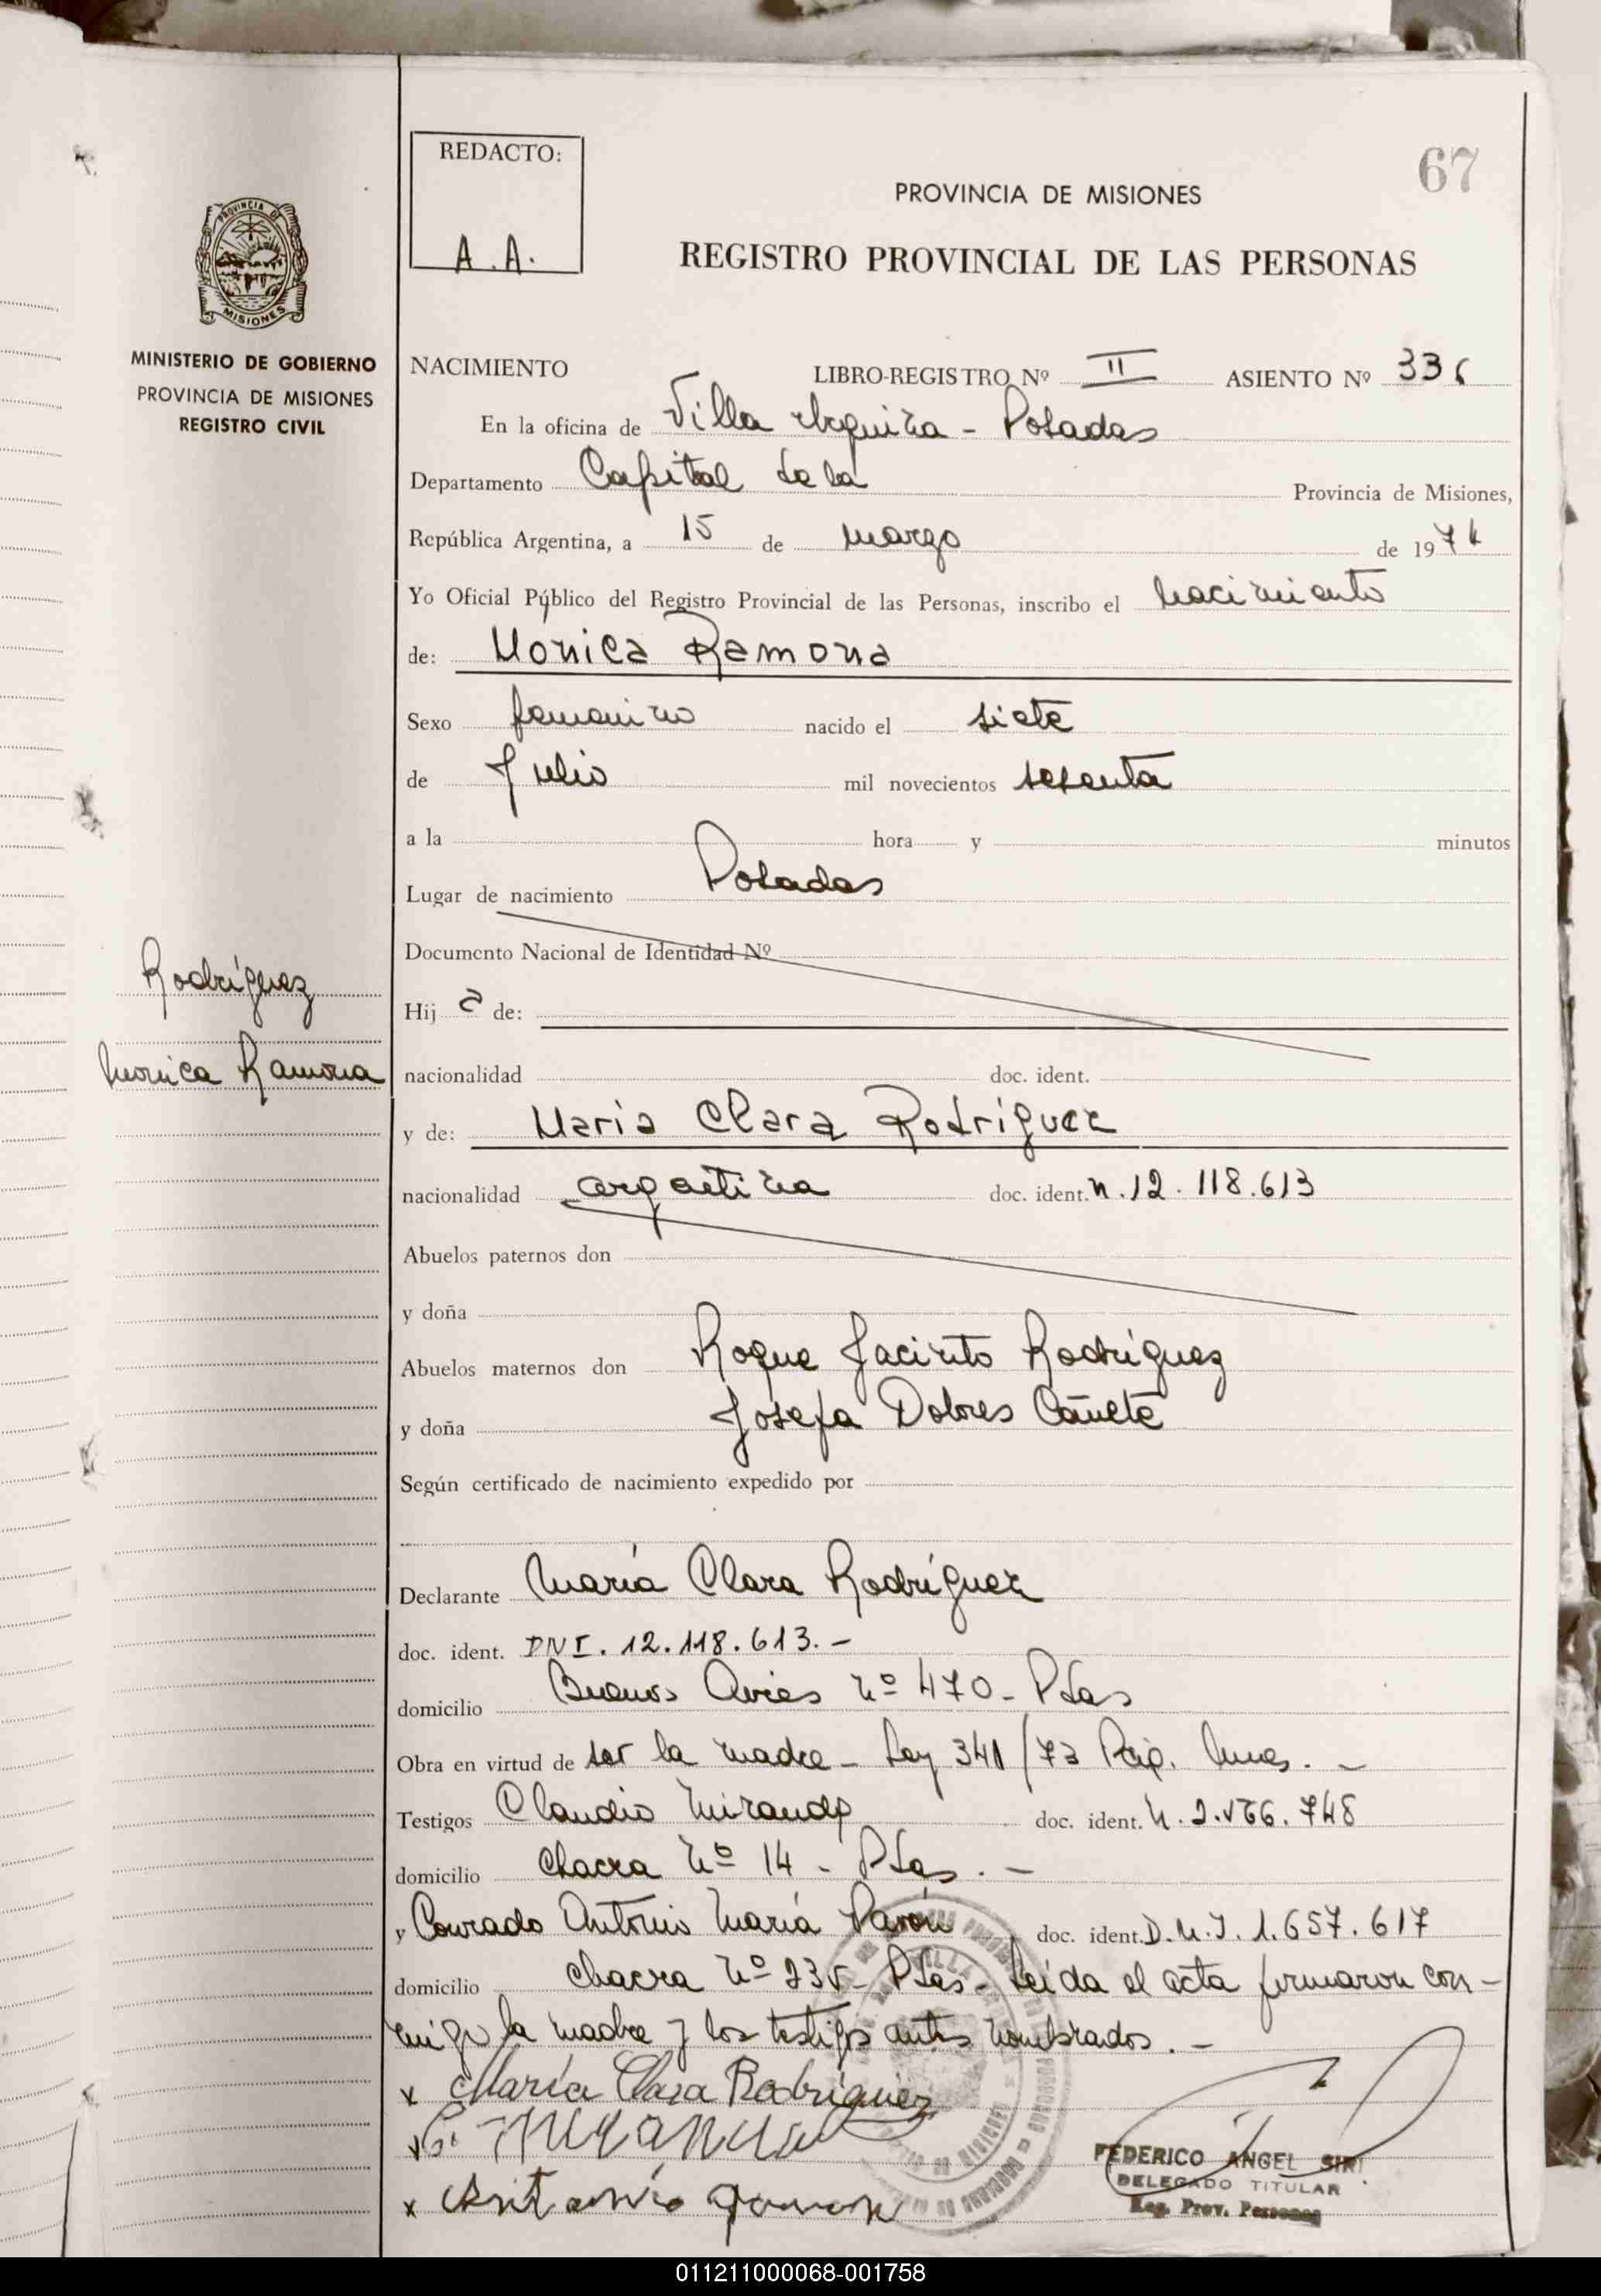 67
REDACTO:
A.A.
PROVINCIA DE MISIONES
REGISTRO PROVINCIAL DE LAS PERSONAS
PROVINCIA DE
MISIONES
MINISTERIO DE GOBIERNO
PROVINCIA DE MISIONES
REGISTRO CIVIL
NACIMIENTO LIBRO-REGISTRO Nº II ASIENTO Nº 336
En la oficina de Villa Urquiza - Posadas
Departamento Capital de la Provincia de Misiones,
República Argentina, a 15 de marzo de 1974
Yo Oficial Público del Registro Provincial de las Personas, inscribo el nacimiento
de: Monica Ramona
Sexo femenino nacido el siete
de Julio mil novecientos sesenta
a la hora y minutos
Lugar de nacimiento Posadas
Documento Nacional de Identidad Nº
Hij a de:
nacionalidad doc. ident.
Rodríguez
Monica Ramona
y de: Maria Clara Rodríguez
nacionalidad argentina doc. ident. n. 12.118.613
Abuelos paternos don
y doña
Abuelos maternos don Roque Jacinto Rodríguez
y doña Josefa Dolores Cañete
Según certificado de nacimiento expedido por
Declarante María Clara Rodríguez
doc. ident. DNI. 12.118.613.-
domicilio Buenos Aires nº 470 - Pdas
Obra en virtud de ser la madre - Ley 341/73
Testigos Claudio Miranda doc. ident.
domicilio Chacra nº 14 - Pdas. -
y Conrado Antonio María doc. ident. D.N.I. 1.657.617
domicilio Chacra nº Pdas - Leída el acta firmaron con-
migo la madre y los testigos antes nombrados. -
x María Clara Rodriguez
x C. Miranda
x Antonio
FEDERICO ANGEL SIRI
DELEGADO TITULAR
Reg. Prov. Personas
011211000068-001758